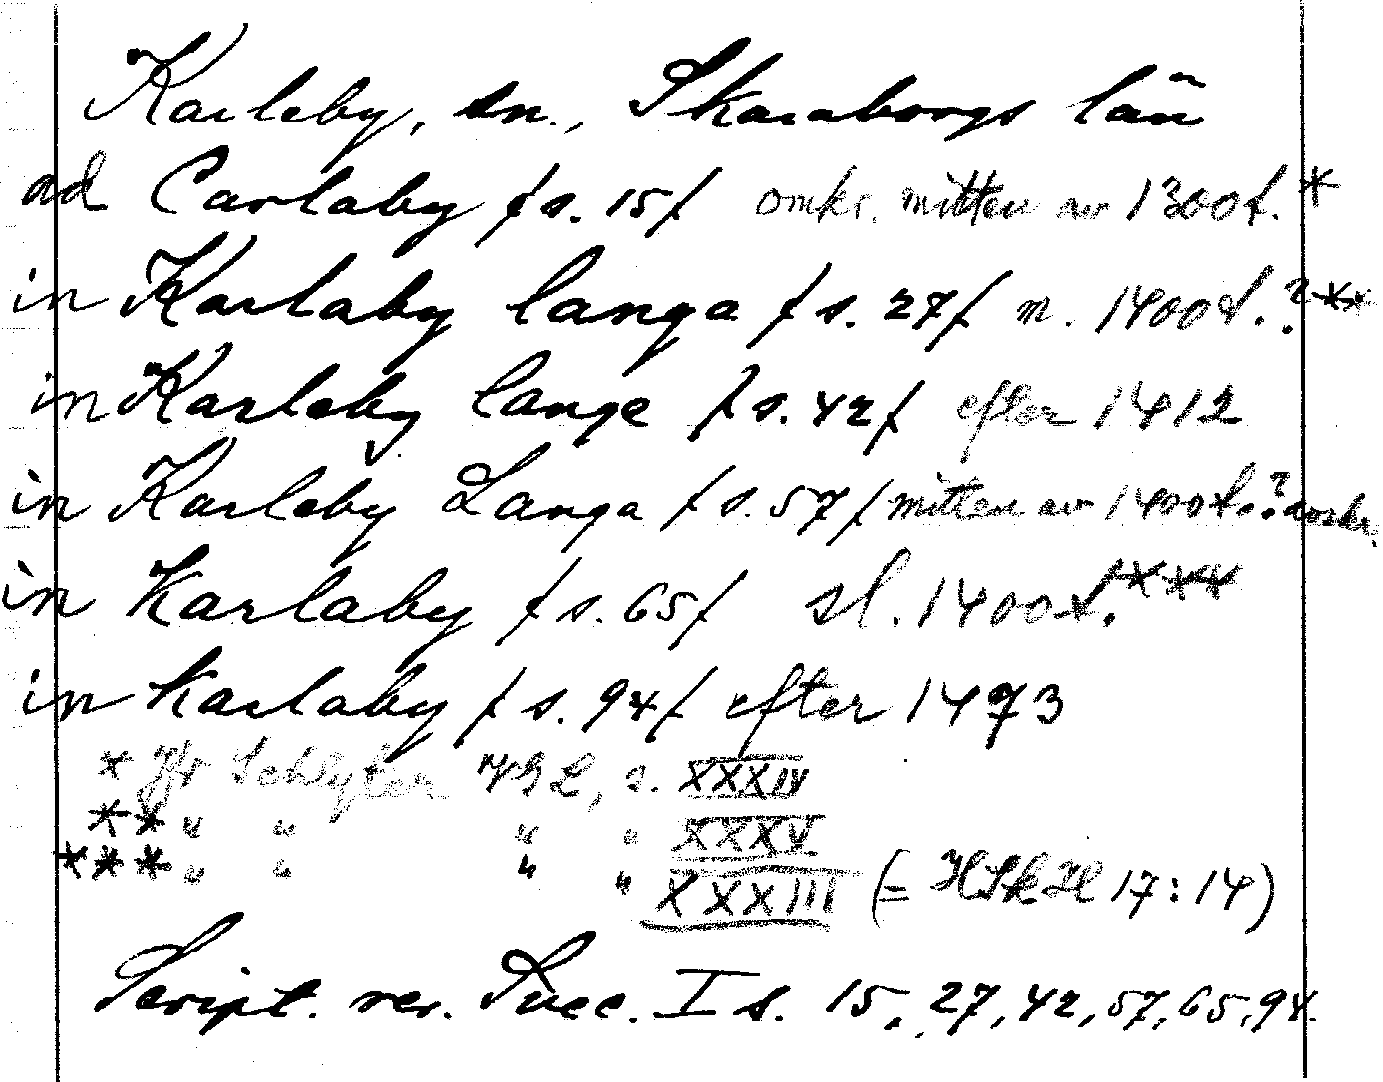 Karleby, sn., Skaraborgs län
ad Carlaby /s. 15/ omkr. mitten av 1300t.*
in Karlaby langa /s. 27/ m. 1400t.?**
in Karleby lange /s. 42/ efter 1412
in Karleby Langa /s. 57/ mitten av 1400t.? avskr.
in Karlaby /s. 65/ sl. 1400t.***
in Karlaby /s. 94/ efter 1473
* Jfr Schlyter VGL, s. XXXIV
** " " " " XXXV
*** " " " " XXXIII (= HSkH 17:14)
Script. rer. Suec. I s. 15, 27, 42, 57, 65, 94.